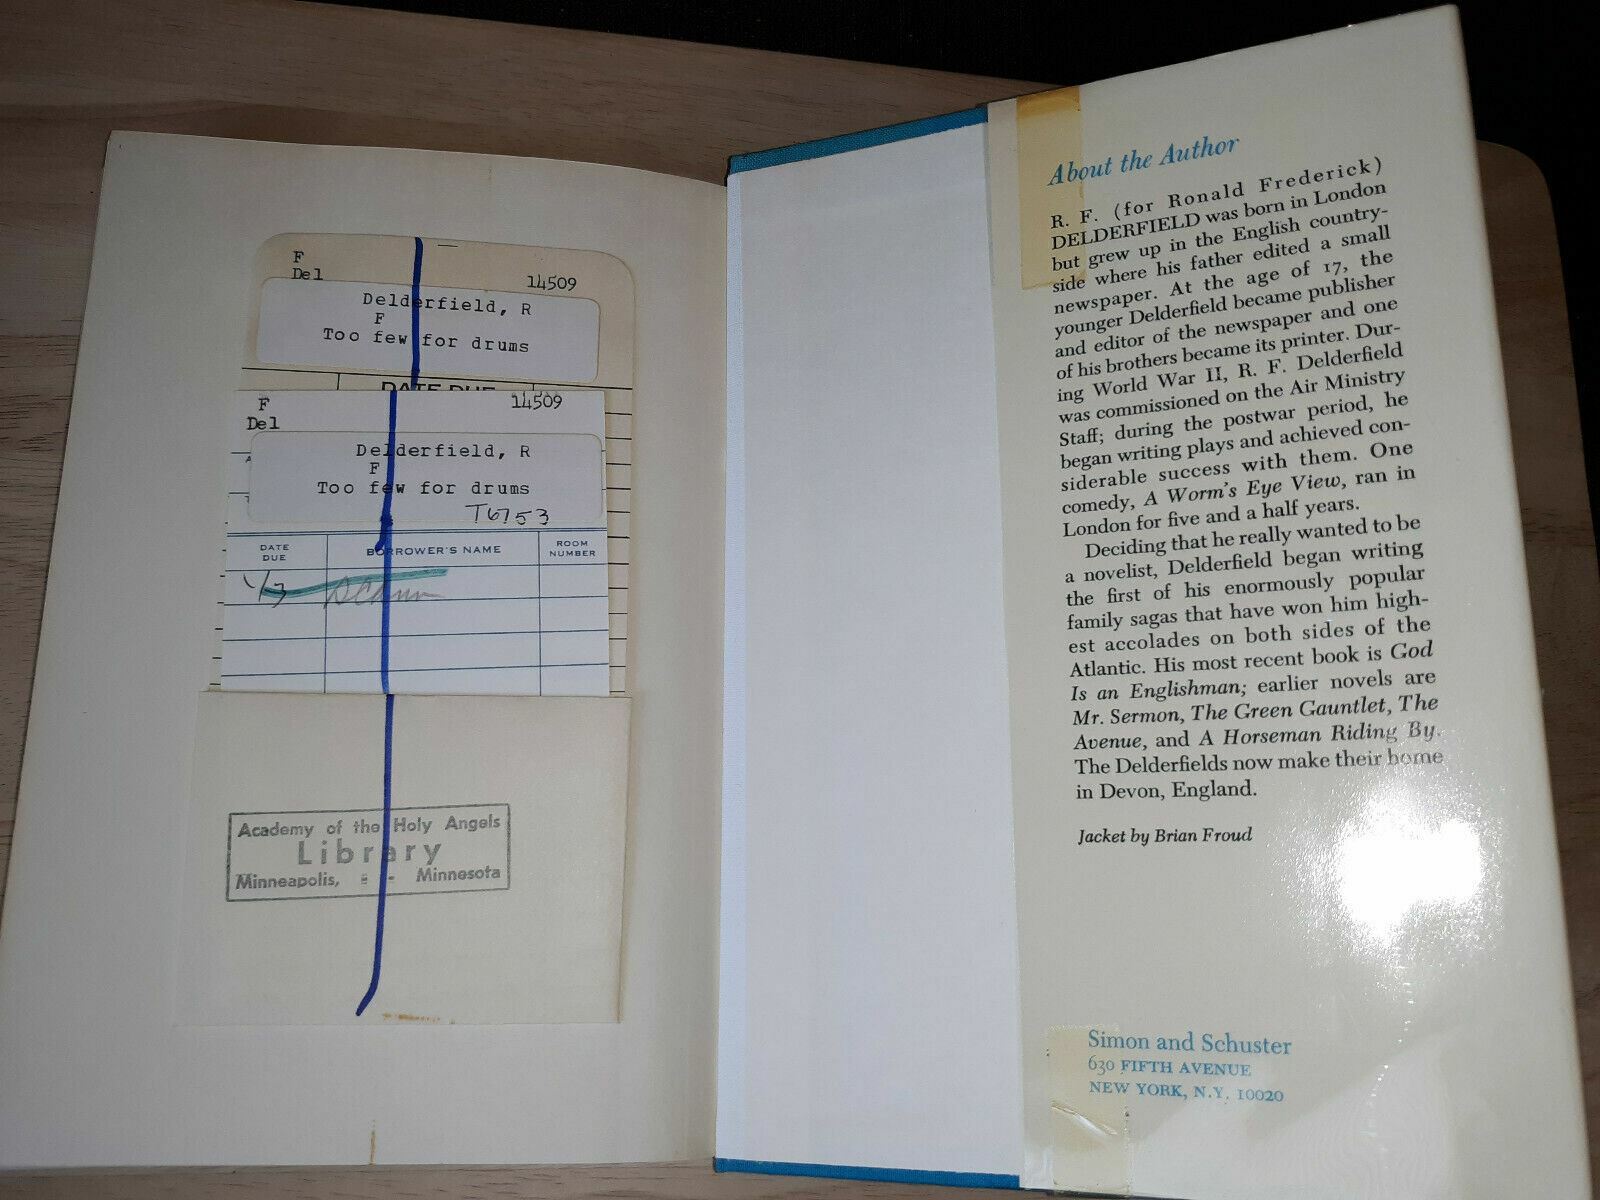 F
Del 14509
Delderfield, R
F
Too few for drums
DATE DUE
F 14509
Del
Delderfield, R
F
Too few for drums
T6753
DATE DUE BORROWER'S NAME ROOM NUMBER
1/3
Academy of the Holy Angels
Library
Minneapolis, Minnesota
About the Author
R. F. (for Ronald Frederick)
DELDERFIELD was born in London
but grew up in the English country-
side where his father edited a small
newspaper. At the age of 17, the
younger Delderfield became publisher
and editor of the newspaper and one
of his brothers became its printer. Dur-
ing World War II, R. F. Delderfield
was commissioned on the Air Ministry
Staff; during the postwar period, he
began writing plays and achieved con-
siderable success with them. One
comedy, A Worm's Eye View, ran in
London for five and a half years.
Deciding that he really wanted to be
a novelist, Delderfield began writing
the first of his enormously popular
family sagas that have won him high-
est accolades on both sides of the
Atlantic. His most recent book is God
Is an Englishman; earlier novels are
Mr. Sermon, The Green Gauntlet, The
Avenue, and A Horseman Riding By.
The Delderfields now make their home
in Devon, England.
Jacket by Brian Froud
Simon and Schuster
630 FIFTH AVENUE
NEW YORK, N.Y. 10020